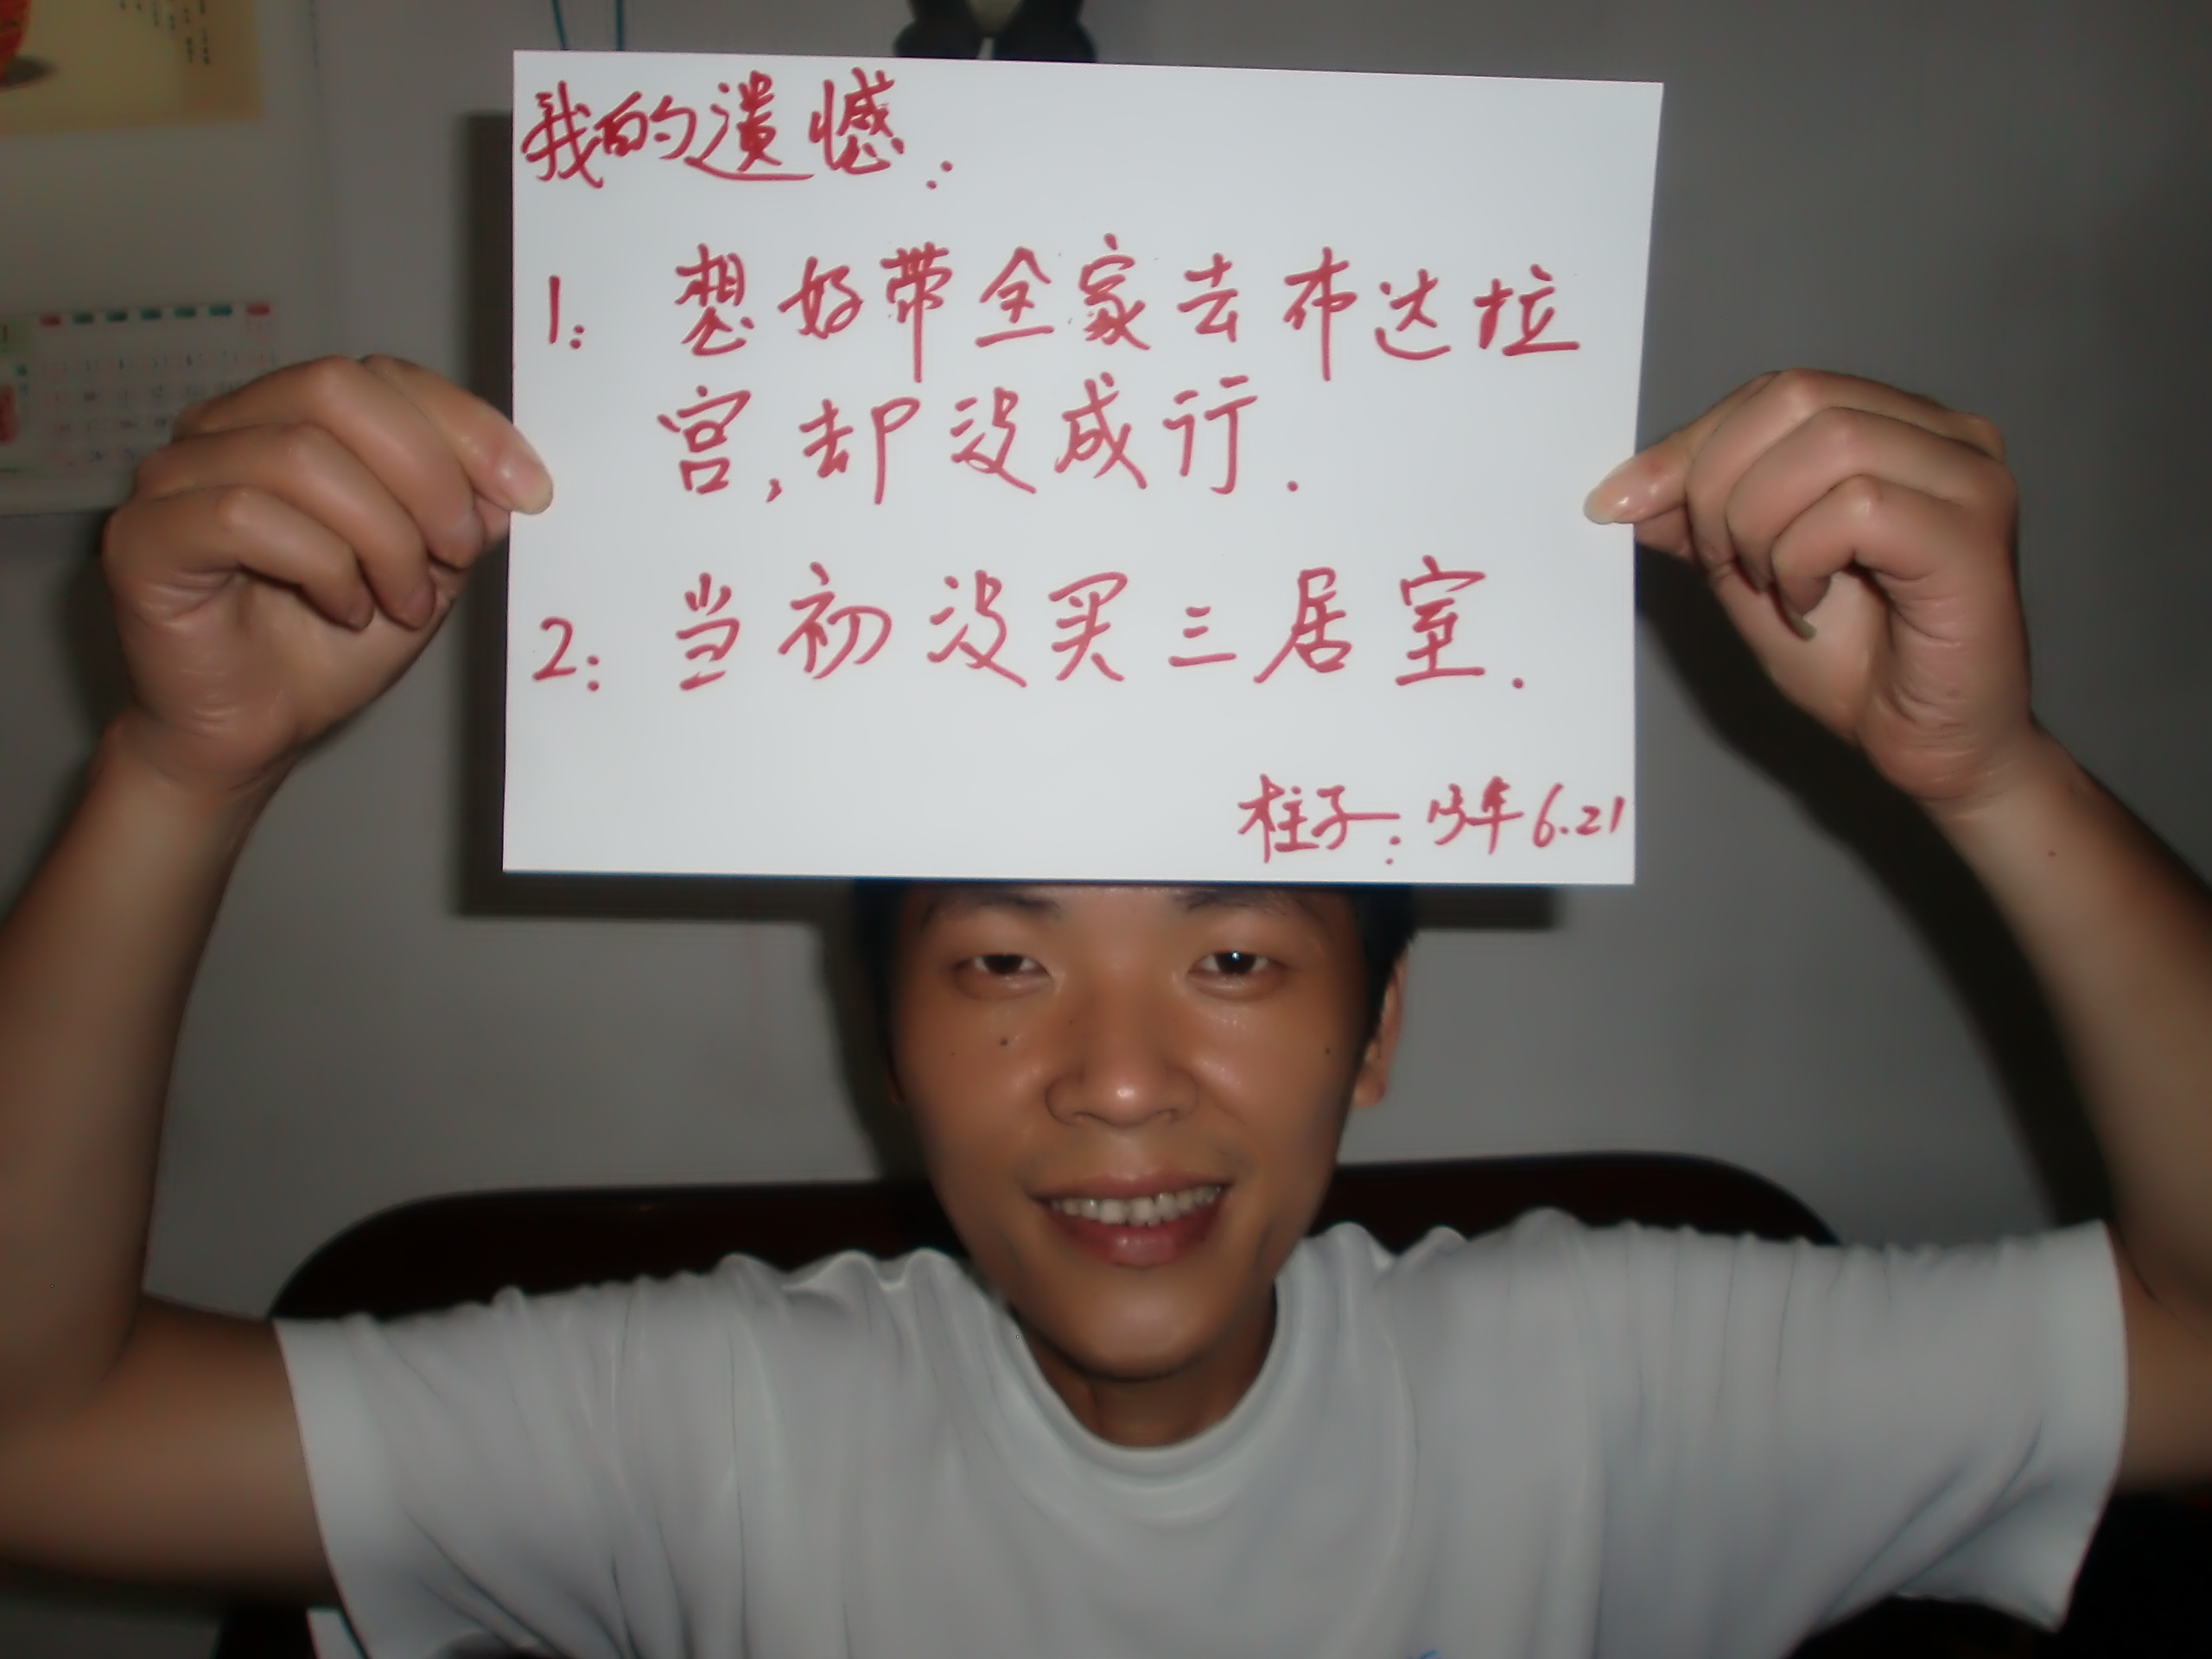 我的遗憾：
1： 想好带全家去布达拉
宫，却没成行．
2： 当初没买三居室．
柱子： 13年6.21